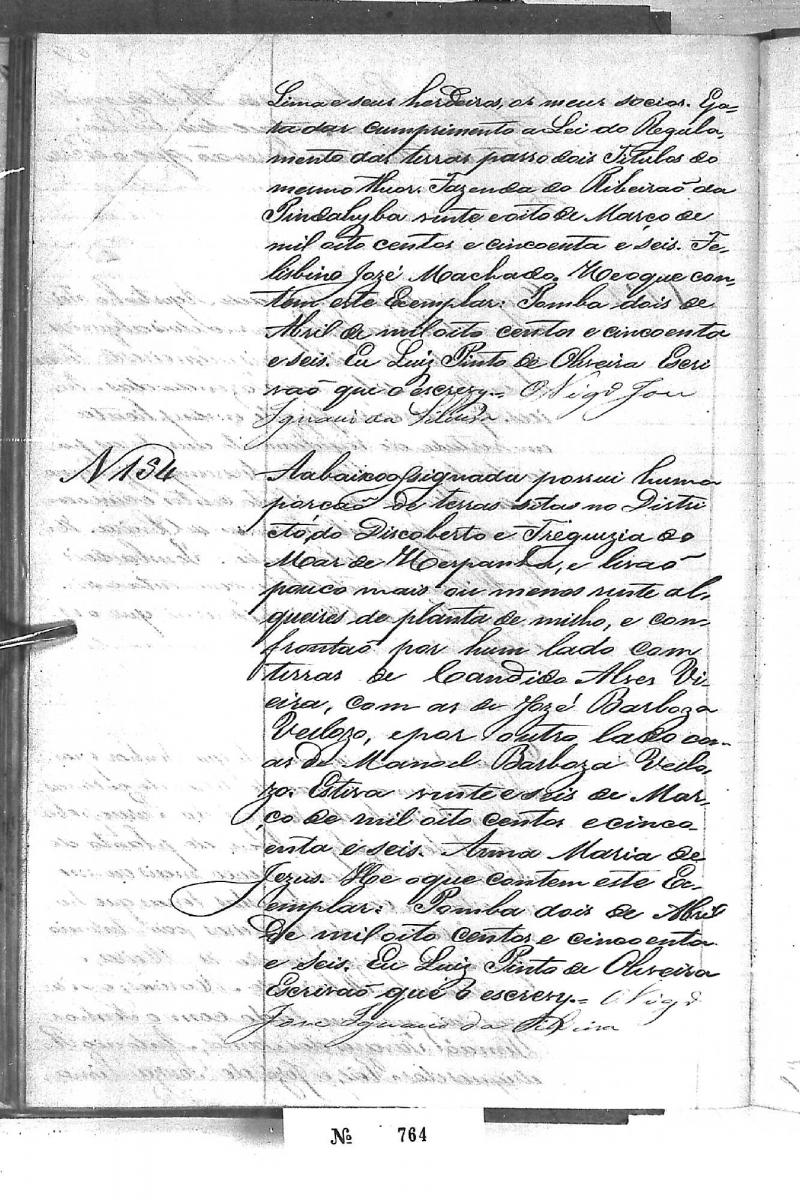 Lima e seus herdeiros, os meus socios. E pa-
ra dar cumprimento a Lei do Regula,
mento das terras passo dois Titulos do
mesmo theor. Fazenda do Ribeiraõ da
Pindahyba vinte e oito de Março de
mil oito centos e cincoenta e seis. Fe-
lisbino Jozé Machado, He o que con-
tem este Exemplar: Pomba dois de
Abril de mil oito centos e cincoenta
e seis. Eu Luiz Pinto de Oliveira Escri
vaõ que o escrevy. O Vigrº Jose
Ignacio da Silveira
N 154
A abaixo assignada possui huma
porcaõ de terras sitas no Distri
cto, do Discoberto e Freguizia do
Mar de Hespanha, e levaõ
pouco mais ou menos vinte al,
queires de planta de milho, e con-
frontaõ por hum lado com
terras de Candido Alves Vi-
eira, com as de Jozé Barboza
Vellozo, e por outro lado co-
as de Manoel Barboza Vello,
zo. Estiva vinte e seis de Mar,
ço de mil oito centos e cinco-
enta e seis. Anna Maria de
Jezus. He o que contem este Ex-
emplar: Pomba dois de Abril
de mil oito centos e cincoenta
e seis. Eu Luiz Pinto de Oliveira
Escrivaõ que o escrevy. O Vigrº
Jose Ignacio da Silveira
Nº 764